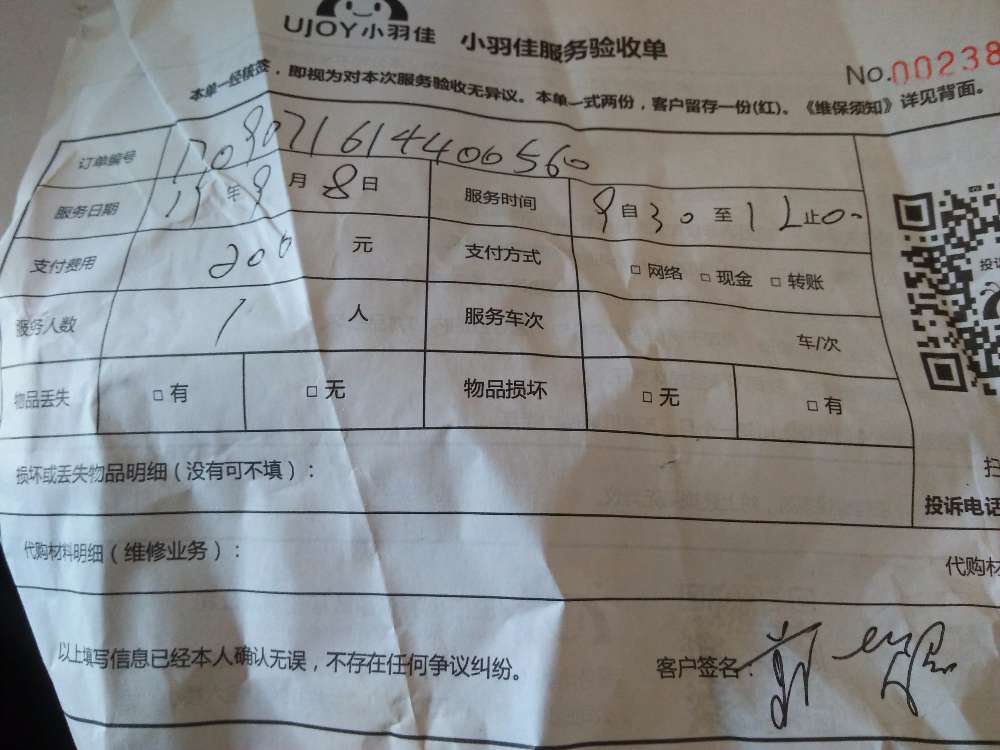 UJOY小羽佳 小羽佳服务验收单
No.00238
本单一经核签，即视为对本次服务验收无异议。本单一式两份，客户留存一份(红)。《维保须知》详见背面。
订单编号 1709071614406560
服务日期 年9月8日 服务时间 9自30至12止0
支付费用 200元 支付方式 □网络 □现金 □转账
服务人数 1人 服务车次 车/次
物品丢失 □有 □无 物品损坏 □无 □有
损坏或丢失物品明细（没有可不填）：
投诉电话
代购材料明细（维修业务）：
代购材
以上填写信息已经本人确认无误，不存在任何争议纠纷。 客户签名：